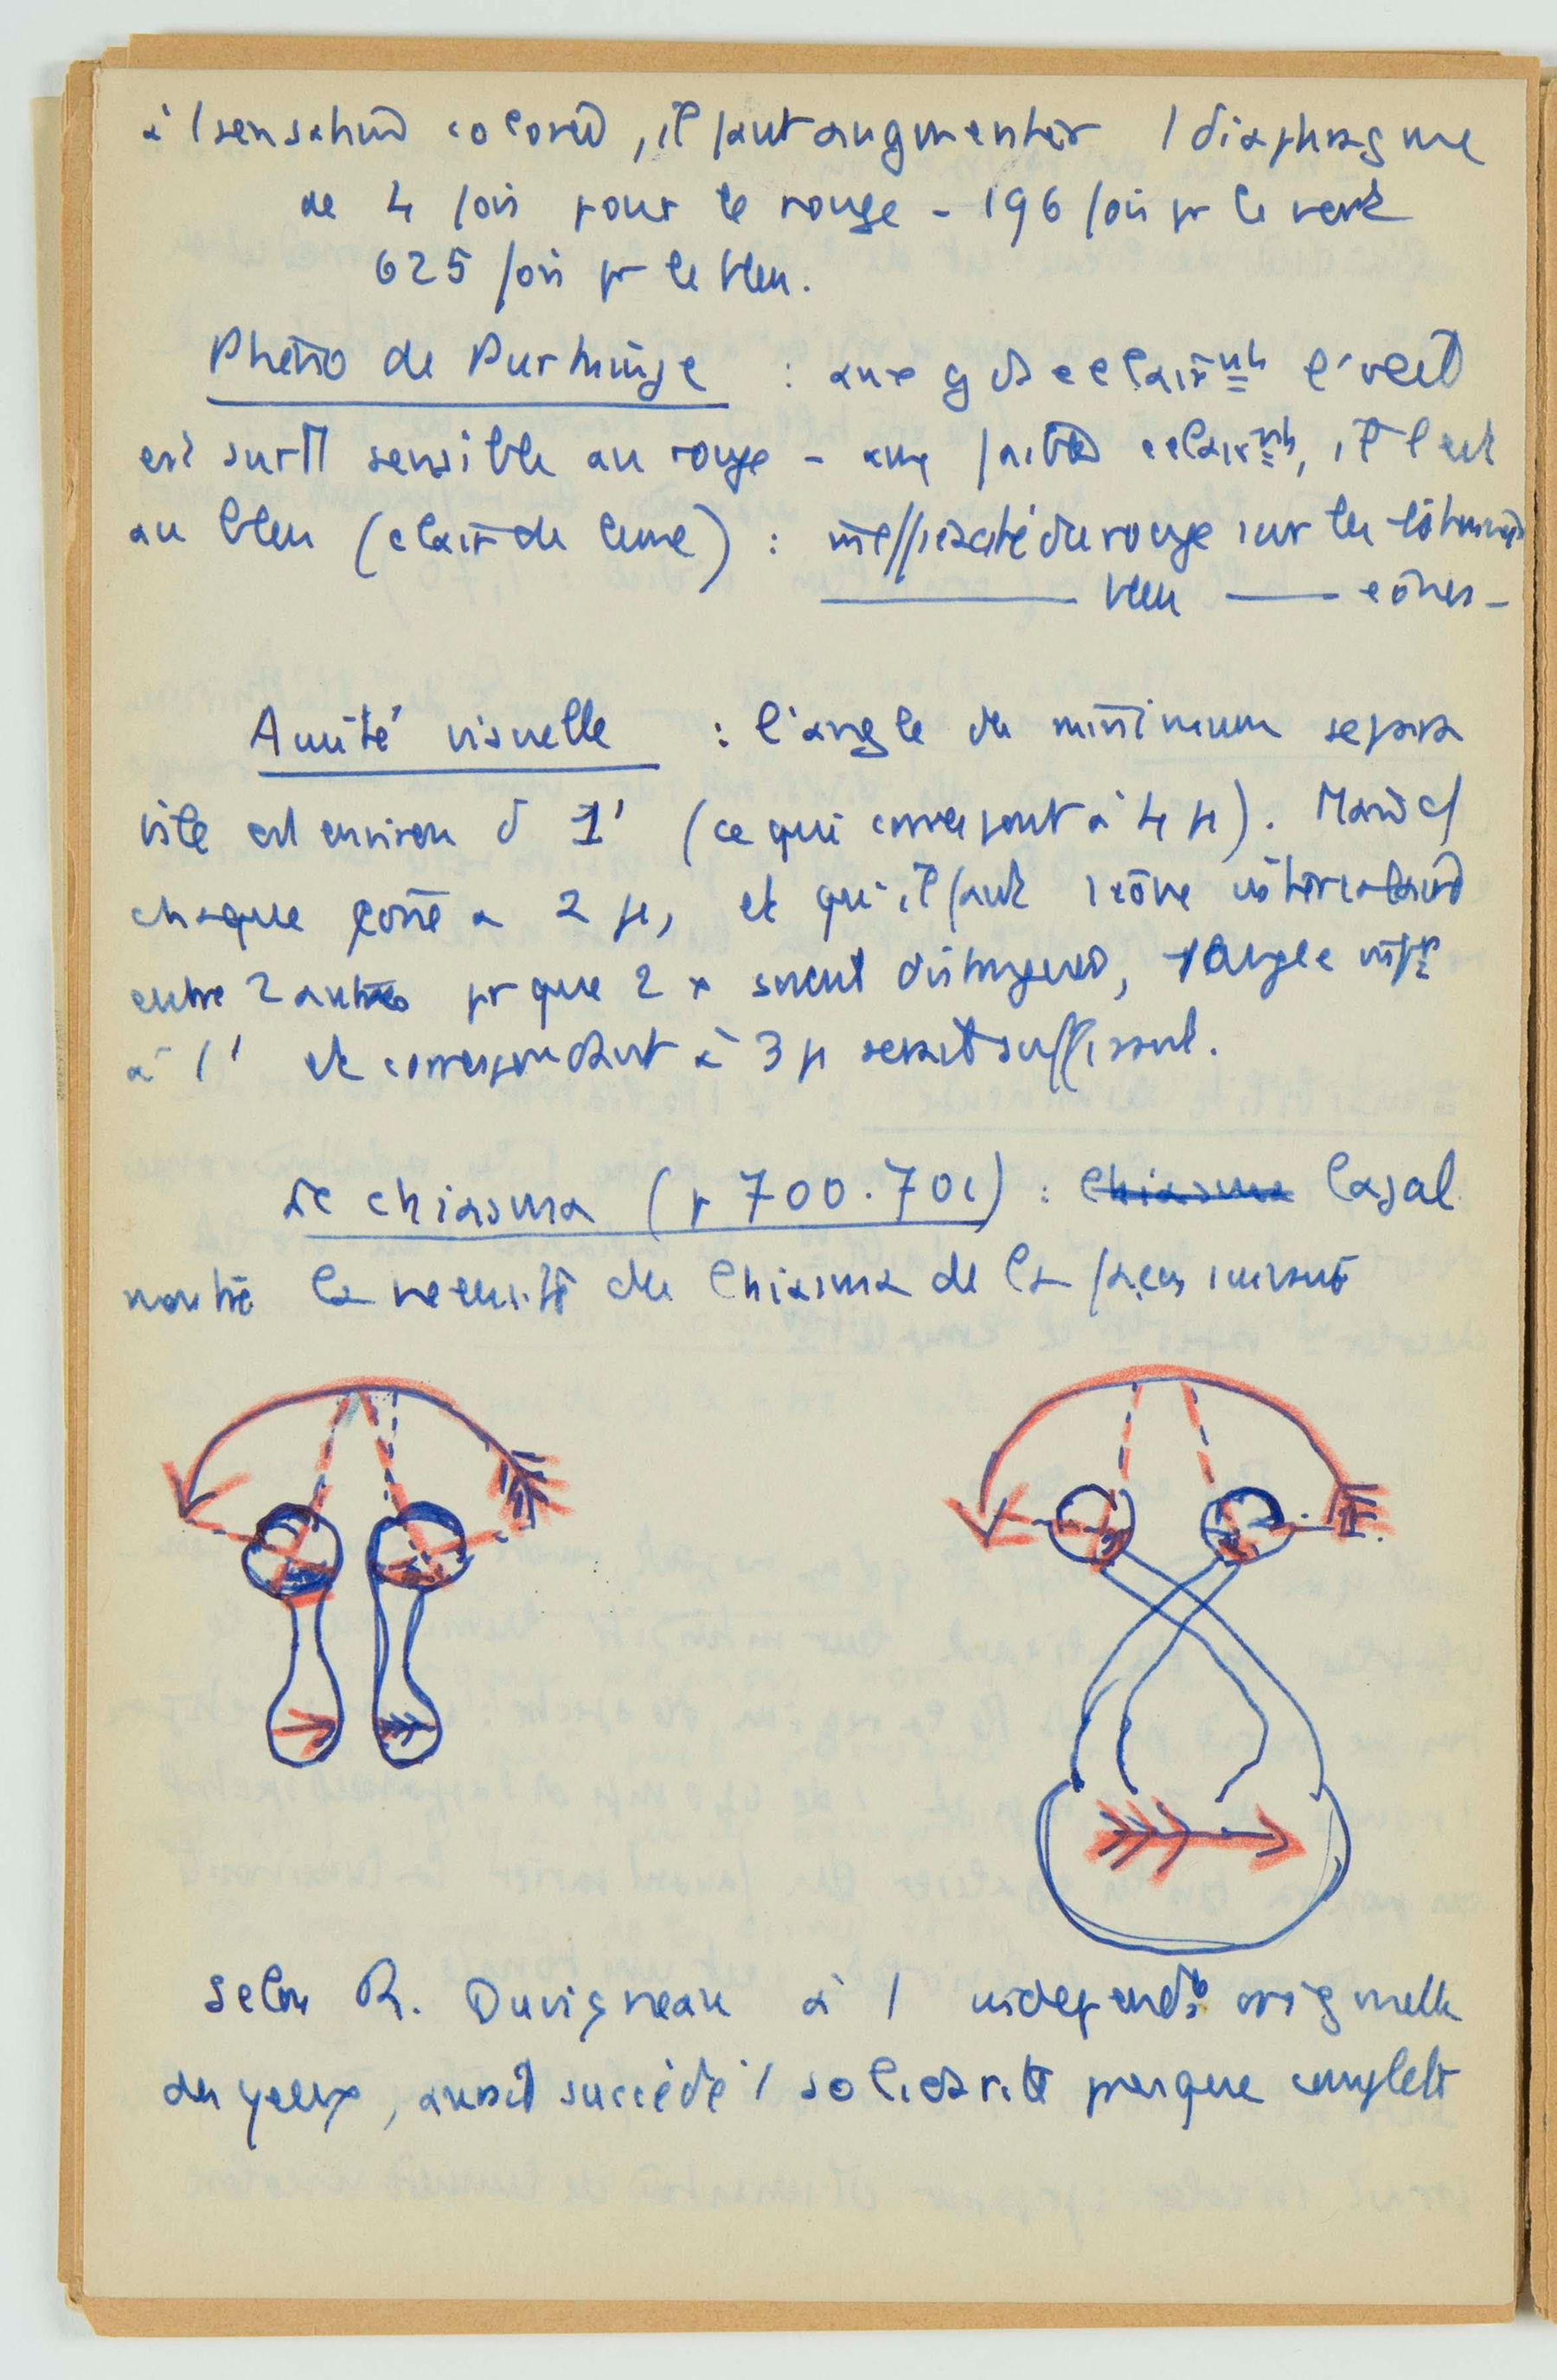 à l sensation colorée, il faut augmenter l diaphragme
de 4 fois pour le rouge - 196 fois pr le vert
625 fois pr le bleu.
Phéno de Purkinje : aux gds éclairnts l'oeil
est surTT sensible au rouge - aux faibles éclairnts, il l'est
au bleu (clair de lune) : inefficacité du rouge sur les bâtonnets
bleu cônes -
Acuité visuelle : l'angle du minimum sépara
bile est environ d 1' (ce qui correspont à 4 µ). Mais
chaque cône a 2 µ, et qu'il faut 1 cône intercalaire
entre 2 autres pr que 2 x soient distingués, 1 angle infr
à 1' et correspondant à 3 µ serait suffisant.
Le chiasma (p 700.701) : Chiasma Cajal
montre la nécessité du Chiasma de la façon suivante
Selon R. Duvigneau à l indépendce originelle
des yeux, aurait succédé 1 solidarité presque complète